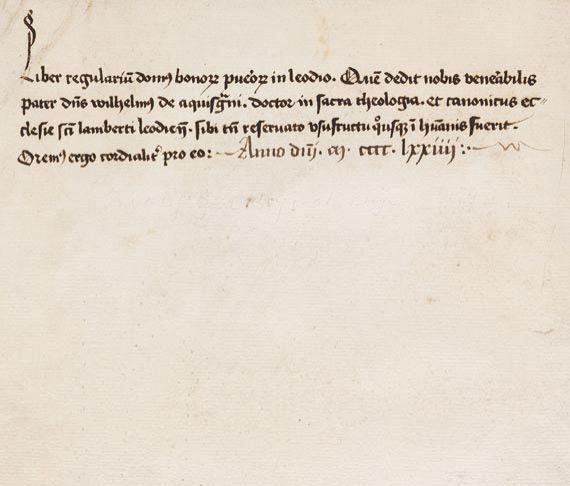 Liber regulariū domꝰ bonoꝝ pueoꝝ in leodio. Quē dedit nobis veneābilis
pater dn̄s wilhelmꝰ de aquisgͣni. doctor in sacra theologia. et canonicus ec-
clesie sc̄i lamberti leodien̄. sibi tn̄ reseruato vsufructu qͦusqꝫ ī hūanis fuerit.
Oremꝰ ergo cordialitͬ pro eo: Anno dn̄i. m. cccc. lxxiiii:.